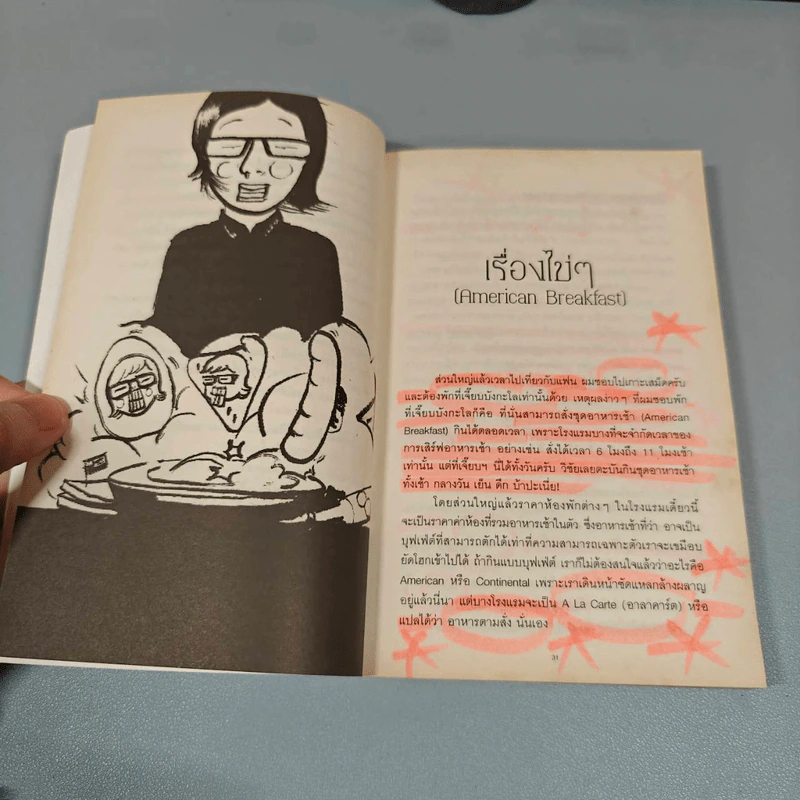 เรื่องไข่ๆ
(American Breakfast)
ส่วนใหญ่แล้วเวลาไปเที่ยวกับแฟน ผมชอบไปเกาะเสม็ดครับ
และต้องพักที่เจี๊ยบบังกะโลเท่านั้นด้วย เหตุผลง่าวๆ ที่ผมชอบพัก
ที่เจี๊ยบบังกะโลก็คือ ที่นั่นสามารถสั่งชุดอาหารเช้า (American
Breakfast) กินได้ตลอดเวลา เพราะโรงแรมบางที่จะจำกัดเวลาของ
การเสิร์ฟอาหารเช้า อย่างเช่น สั่งได้เวลา 6 โมงถึง 11 โมงเช้า
เท่านั้น แต่ที่เจี๊ยบฯ นี่ได้ทั้งวันครับ วิชัยเลยตะบันกินชุดอาหารเช้า
ทั้งเช้า กลางวัน เย็น ดึก บ้าปะเนี่ย!
โดยส่วนใหญ่แล้วราคาห้องพักต่างๆ ในโรงแรมเดี๋ยวนี้
จะเป็นราคาค่าห้องที่รวมอาหารเช้าในตัว ซึ่งอาหารเช้าที่ว่า อาจเป็น
บุฟเฟ่ต์ที่สามารถตักได้เท่าที่ความสามารถเฉพาะตัวเราจะเขมือบ
ยัดโฮกเข้าไปได้ ถ้ากินแบบบุฟเฟ่ต์ เราก็ไม่ต้องสนใจแล้วว่าอะไรคือ
American หรือ Continental เพราะเราเดินหน้าซัดแหลกล้างผลาญ
อยู่แล้วนี่นา แต่บางโรงแรมจะเป็น A La Carte (อาลาคาร์ต) หรือ
แปลได้ว่า อาหารตามสั่ง นั่นเอง